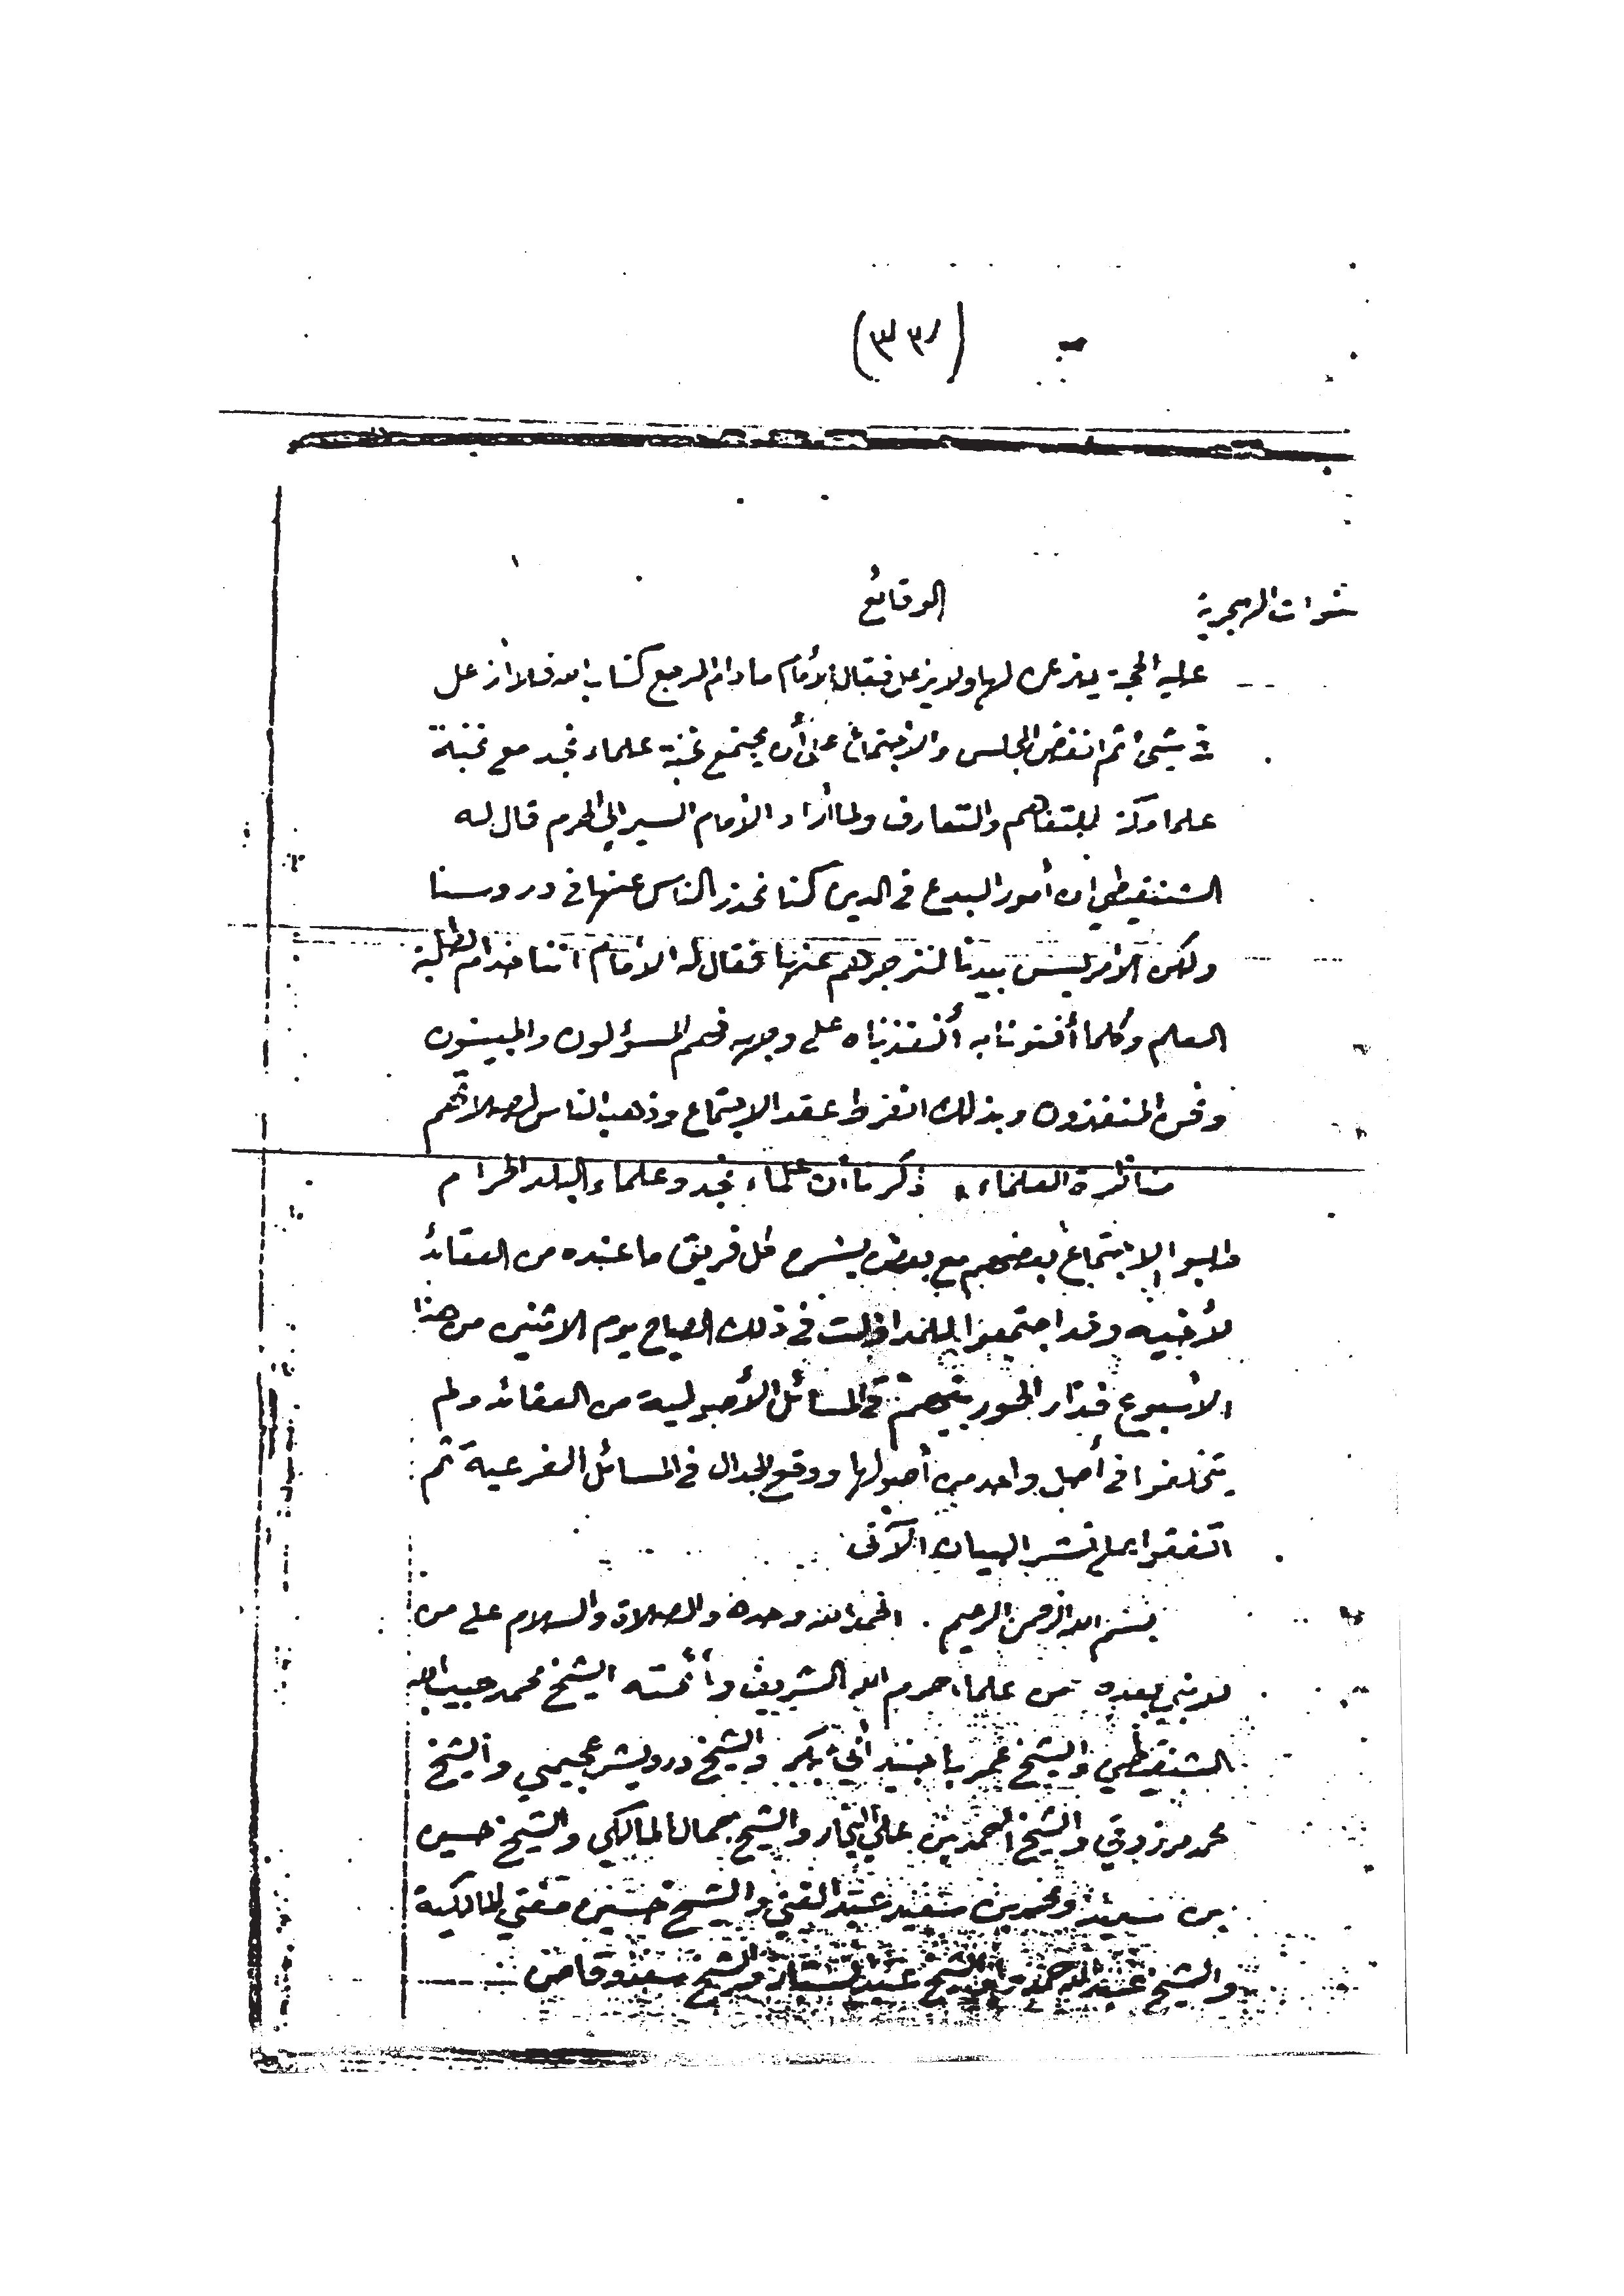 (٣٣١)
سنوات الهجرية
الوقائع
عليه الحجة يذعن لها ولا يزعل فقال الأمام ما دام المرجع كتاب الله فلا أزعل
من شيئ ثم انفض المجلس والاجتماع على أن يجتمع نخبة علماء نجد مع نخبة
علماء مكة للتفاهم والتعارف ولما أراد الأمام السير إلى الحرم قال له
الشنقيطي ان أمور البدع في الدين كنا نحذر الناس عنها في دروسنا
ولكن الأمر ليس بيدنا لنزجرهم عنها فقال له الأمام اننا خدام لطلبة
العلم وكلما أفتونا به أنفذناه على وجهه فهم المسؤلون والمبينون
ونحن المنفذون وبذلك انفرط عقد الاجتماع وذهب الناس لصلاتهم
مناظرة العلماء، ذكرنا أن علماء نجد وعلماء البلد الحرام
طلبوا الاجتماع بعضهم مع بعض يشرح كل فريق ما عنده من العقائد
لأخيه وقد اجتمعوا في ذلك الصباح يوم الاثنين من هذا
الأسبوع فدار المحور بينهم في المسائل الأصولية من العقائد ولم
يختلفوا في أصل واحد من أصولها ووقع الجدال في المسائل الفرعية ثم
اتفقوا على نشر البيان الآتى
بسم الله الرحمن الرحيم . الحمد لله وحده والصلاة والسلام على من
لا نبي بعده من علماء حرم الله الشريف وأئمته الشيخ محمد حبيب الله
الشنقيطي والشيخ عمر باجنيد أبي بكر والشيخ درويش عجيمي والشيخ
محمد مرزوقي والشيخ أحمد بن علي النجار والشيخ جمال المالكي والشيخ حسين
بن سعيد ومحمد بن سعيد عبد الغني والشيخ حسين مفتي المالكية
والشيخ عبد الله حمدوه والشيخ عبد الستار والشيخ سعد وقاص